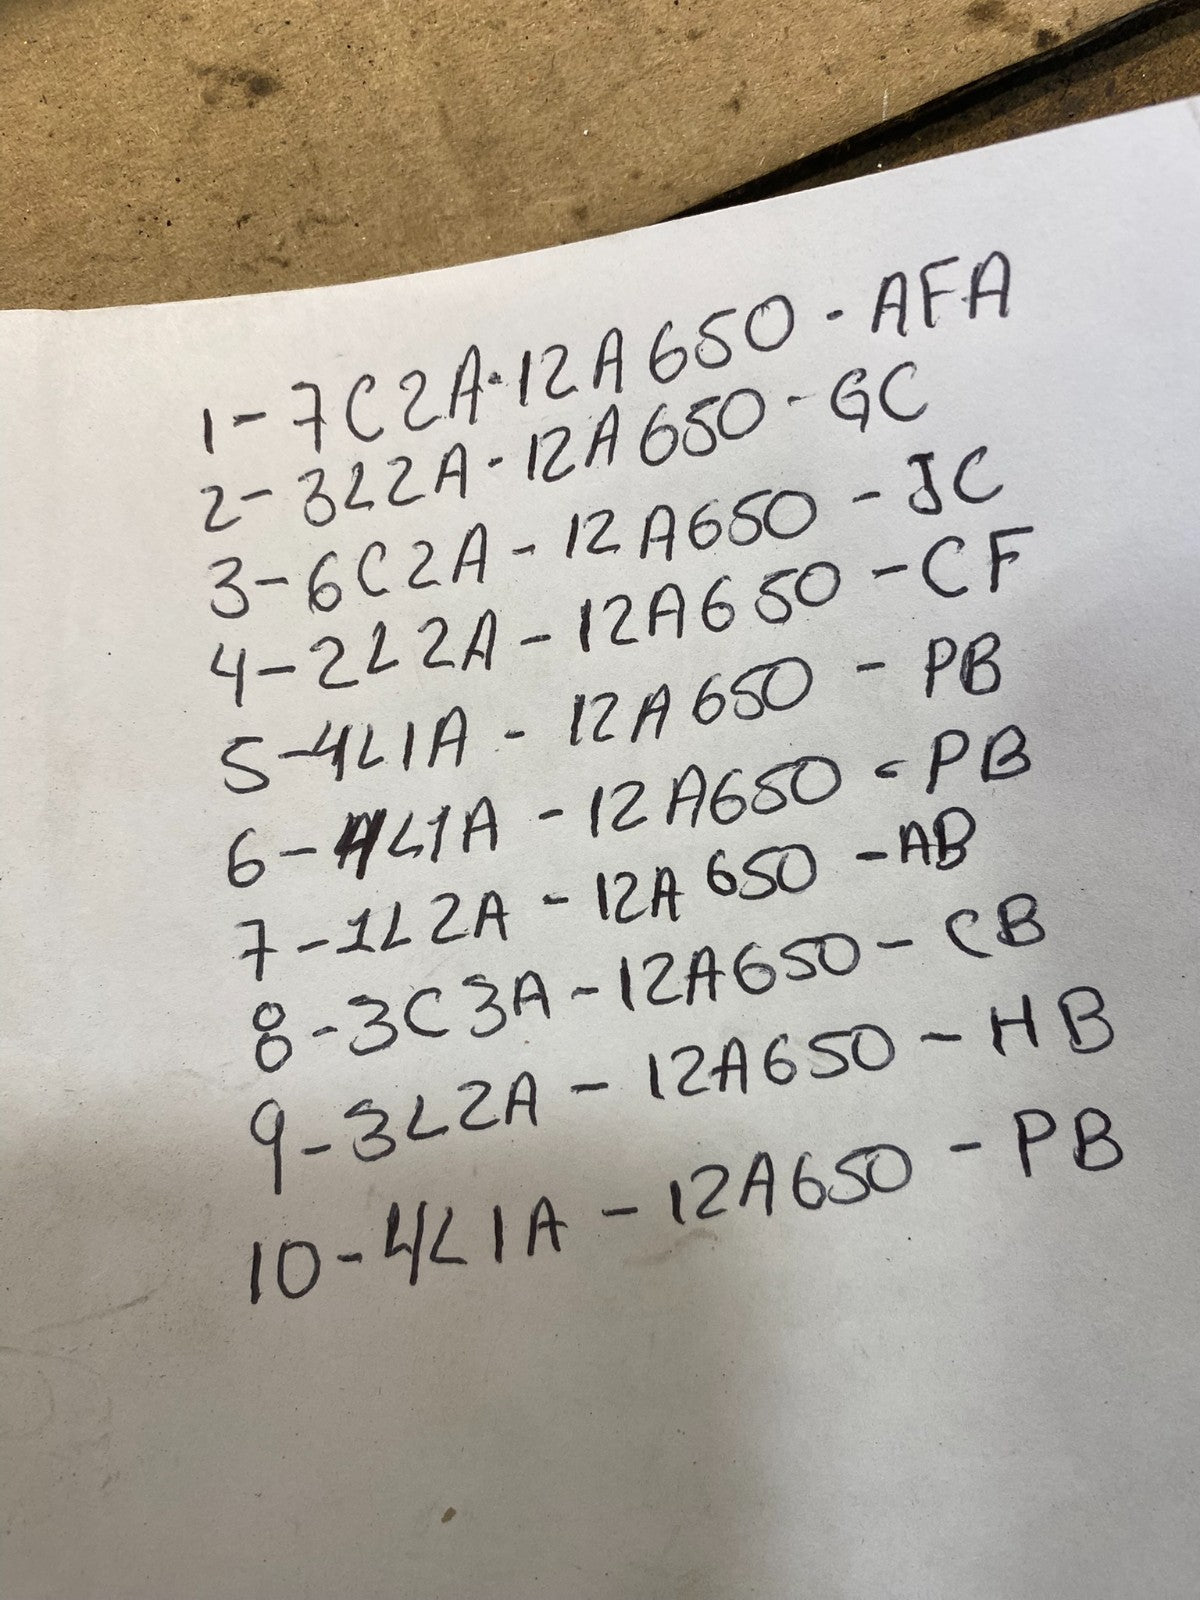 1-7C2A-12A650-AFA
2-3L2A-12A650-GC
3-6C2A-12A650-JC
4-2L2A-12A650-CF
5-4L1A-12A650-PB
6-4L1A-12A650-PB
7-1L2A-12A650-AB
8-3C3A-12A650-CB
9-3L2A-12A650-HB
10-4L1A-12A650-PB